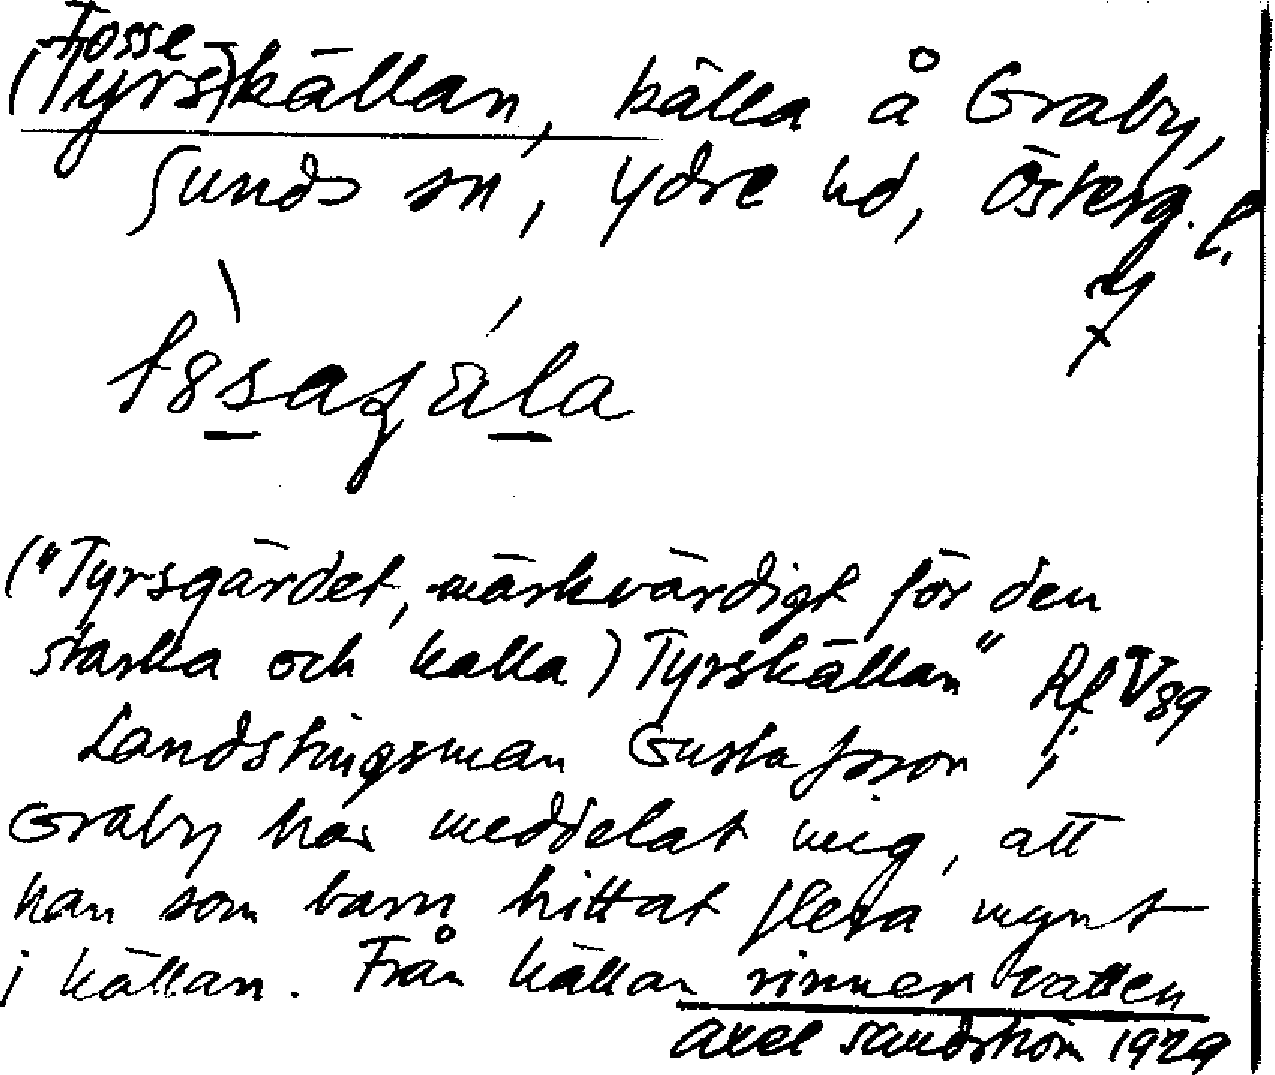 Fosse
(Tyrs)källan, källa å Graby,
Sunds sn, Ydre hd, Österg. l.
("Tyrsgärdet, märkvärdigt för den
starka och kalla) Tyrskällan" Rf V 89
Landstingsman Gustafsson i
Graby har meddelat mig, att
han som barn hittat flera mynt
i källan. Från källan rinner vatten
Axel Sandström 1929